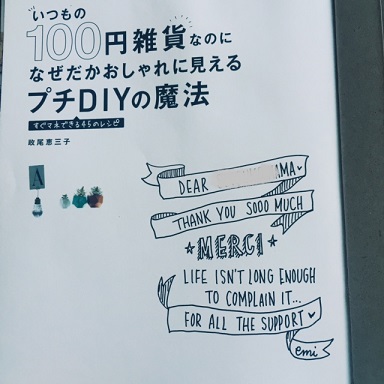 いつもの
100円雑貨なのに
なぜだかおしゃれに見える
プチDIYの魔法
すぐマネできる45のレシピ
政尾恵三子
A
DEAR AMA
THANK YOU SOOO MUCH
MERCI
LIFE ISN'T LONG ENOUGH
TO COMPLAIN IT...
FOR ALL THE SUPPORT
emi